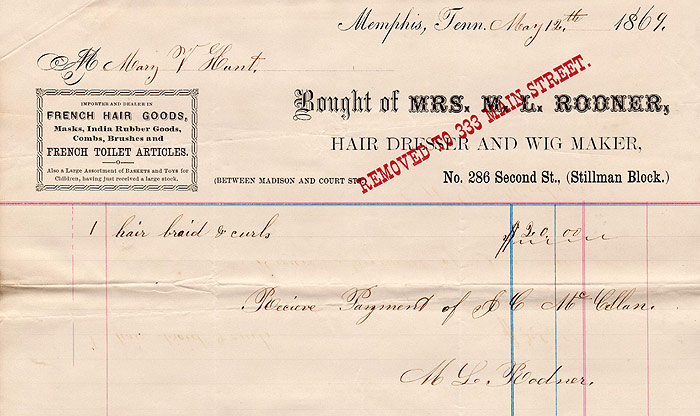 Memphis, Tenn. May 12th 1869.
M Mary V Hunt.
IMPORTER AND DEALER IN
FRENCH HAIR GOODS,
Masks, India Rubber Goods,
Combs, Brushes and
FRENCH TOILET ARTICLES.
Also a Large Assortment of BASKETS and TOYS for
Children, having just received a large stock.
Bought of MRS. M. L. RODNER,
HAIR DRESSER AND WIG MAKER,
(BETWEEN MADISON AND COURT STS.) No. 286 Second St., (Stillman Block.)
REMOVED TO 333 MAIN STREET.
1 hair braid & curls $20.00
Recieve Payment of J C McClellan.
M L. Rodner.